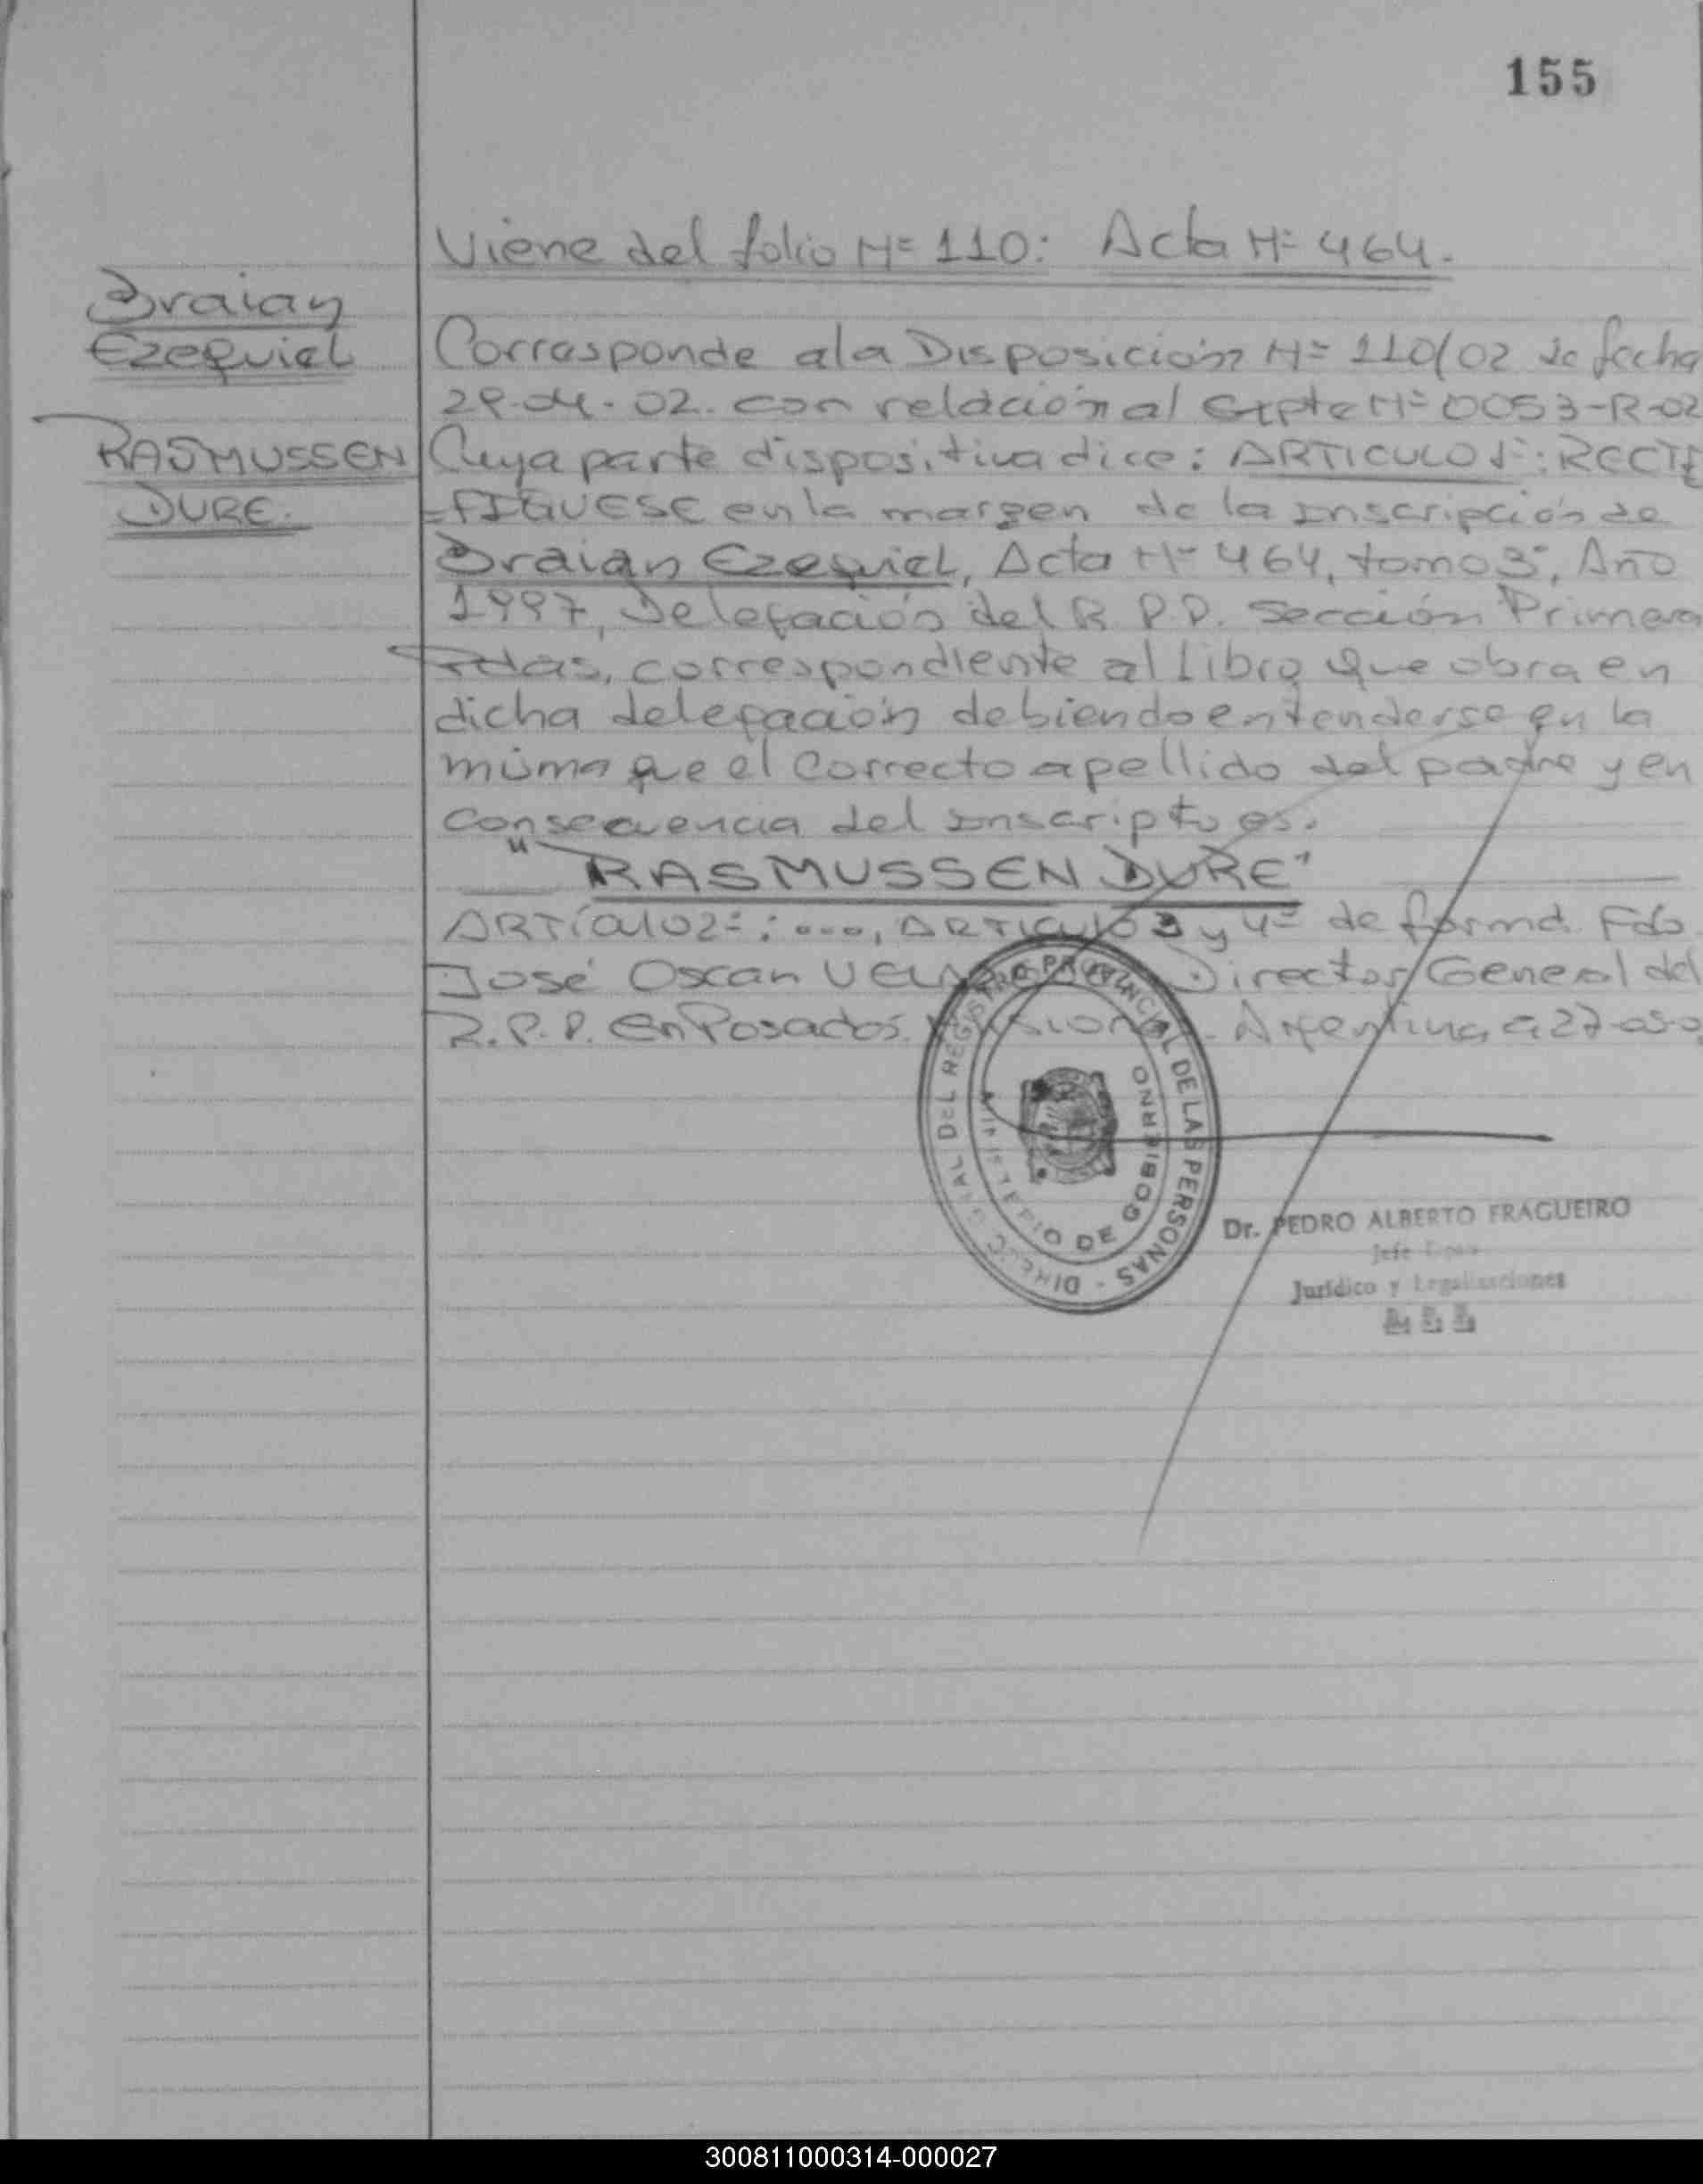 155
Viene del folio Nº 110: Acta Nº 464.
Braian
Ezequiel
RASMUSSEN
DURE.
Corresponde a la Disposición Nº 110/02 de fecha
29-04-02. con relación al Expte Nº 0053-R-02
Cuya parte dispositiva dice: ARTICULO 1º: RECTI
=FIQUESE en la margen de la Inscripción de
Braian Ezequiel, Acta Nº 464, tomo 3º, Año
1997, Delegación del R.P.P. Sección Primera
Pdas, correspondiente al Libro que obra en
dicha delegación debiendo entenderse en la
misma que el Correcto apellido del padre y en
consecuencia del Inscripto es:
"RASMUSSEN DURE"
ARTículo 2º: ..., ARTICULO 3 y 4º de forma. Fdo.
José Oscar Director General del
R.P.P. En Posadas, Misiones - Argentina, a 27-05-0
DIRECCION GRAL DEL REGISTRO PROVINCIAL DE LAS PERSONAS -
MINISTERIO DE GOBIERNO
Dr. PEDRO ALBERTO FRAGUEIRO
Jefe Dpto
Jurídico y Legalizaciones
300811000314-000027